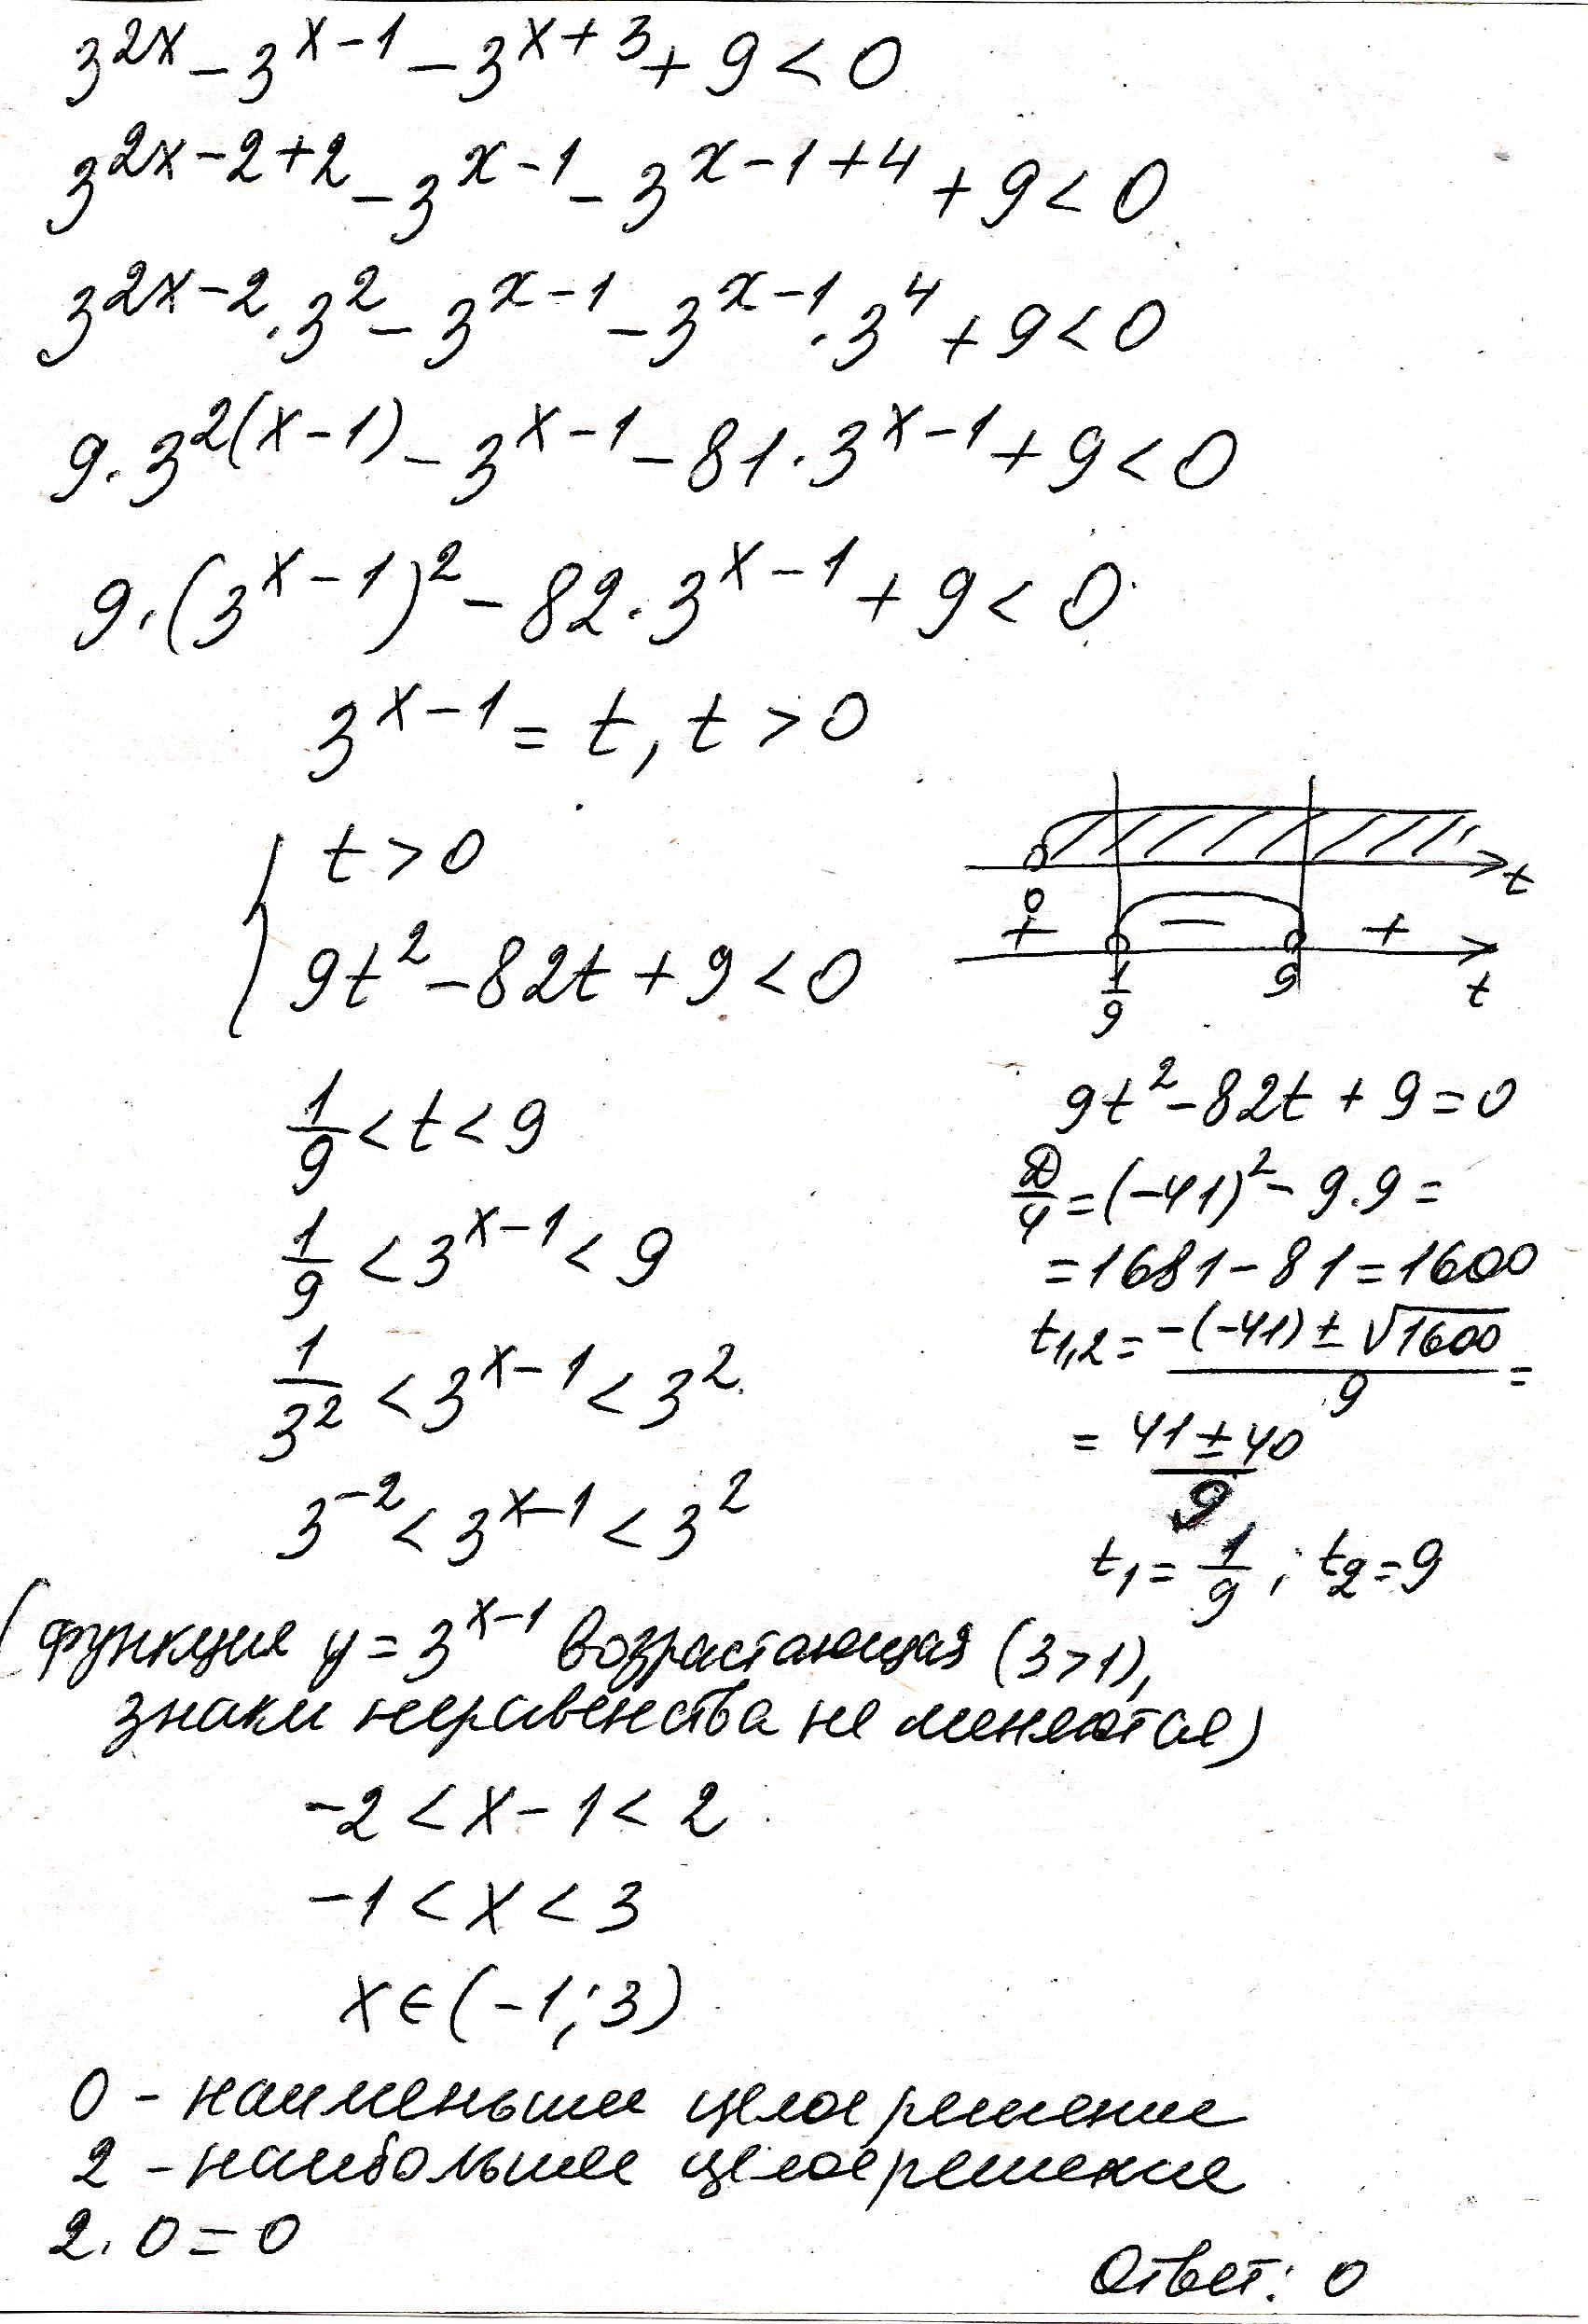 3^{2x} - 3^{x-1} - 3^{x+3} + 9 < 0
3^{2x-2+2} - 3^{x-1} - 3^{x-1+4} + 9 < 0
3^{2x-2} · 3^2 - 3^{x-1} - 3^{x-1} · 3^4 + 9 < 0
9 · 3^{2(x-1)} - 3^{x-1} - 81 · 3^{x-1} + 9 < 0
9 · (3^{x-1})^2 - 82 · 3^{x-1} + 9 < 0
3^{x-1} = t, t > 0
{ t > 0
9t^2 - 82t + 9 < 0
1/9 < t < 9
1/9 < 3^{x-1} < 9
1/3^2 < 3^{x-1} < 3^2
3^{-2} < 3^{x-1} < 3^2
0 t
+ − +
1/9 9 t
9t^2 - 82t + 9 = 0
D/4 = (-41)^2 - 9.9 =
= 1681 - 81 = 1600
t_{1,2} = (-(-41) ± √1600)/9 =
= (41 ± 40)/9
t_1 = 1/9 ; t_2 = 9
(функция y = 3^{x-1} возрастающая (3>1),
знаки неравенства не меняются)
-2 < x - 1 < 2
-1 < x < 3
x ∈ (-1; 3)
0 - наименьшее целое решение
2 - наибольшее целое решение
2 . 0 = 0
Ответ: 0